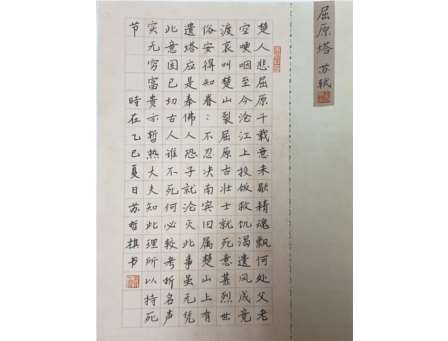 屈原塔 苏轼
楚人悲屈原千载意未歇精魂飘何处父老
空哽咽至今沧江上投饭救饥渴遗风成竞
渡哀叫楚山裂屈原古壮士就死意甚烈世
俗安得知眷:不忍决南宾旧属楚山上有
遗塔应是奉佛人恐子就沦灭此事虽无凭
此意固已切古人谁不死何必较考折名声
实无穷富贵亦暂热大夫知此理所以持死
节
时在乙巳夏日苏哲棋书